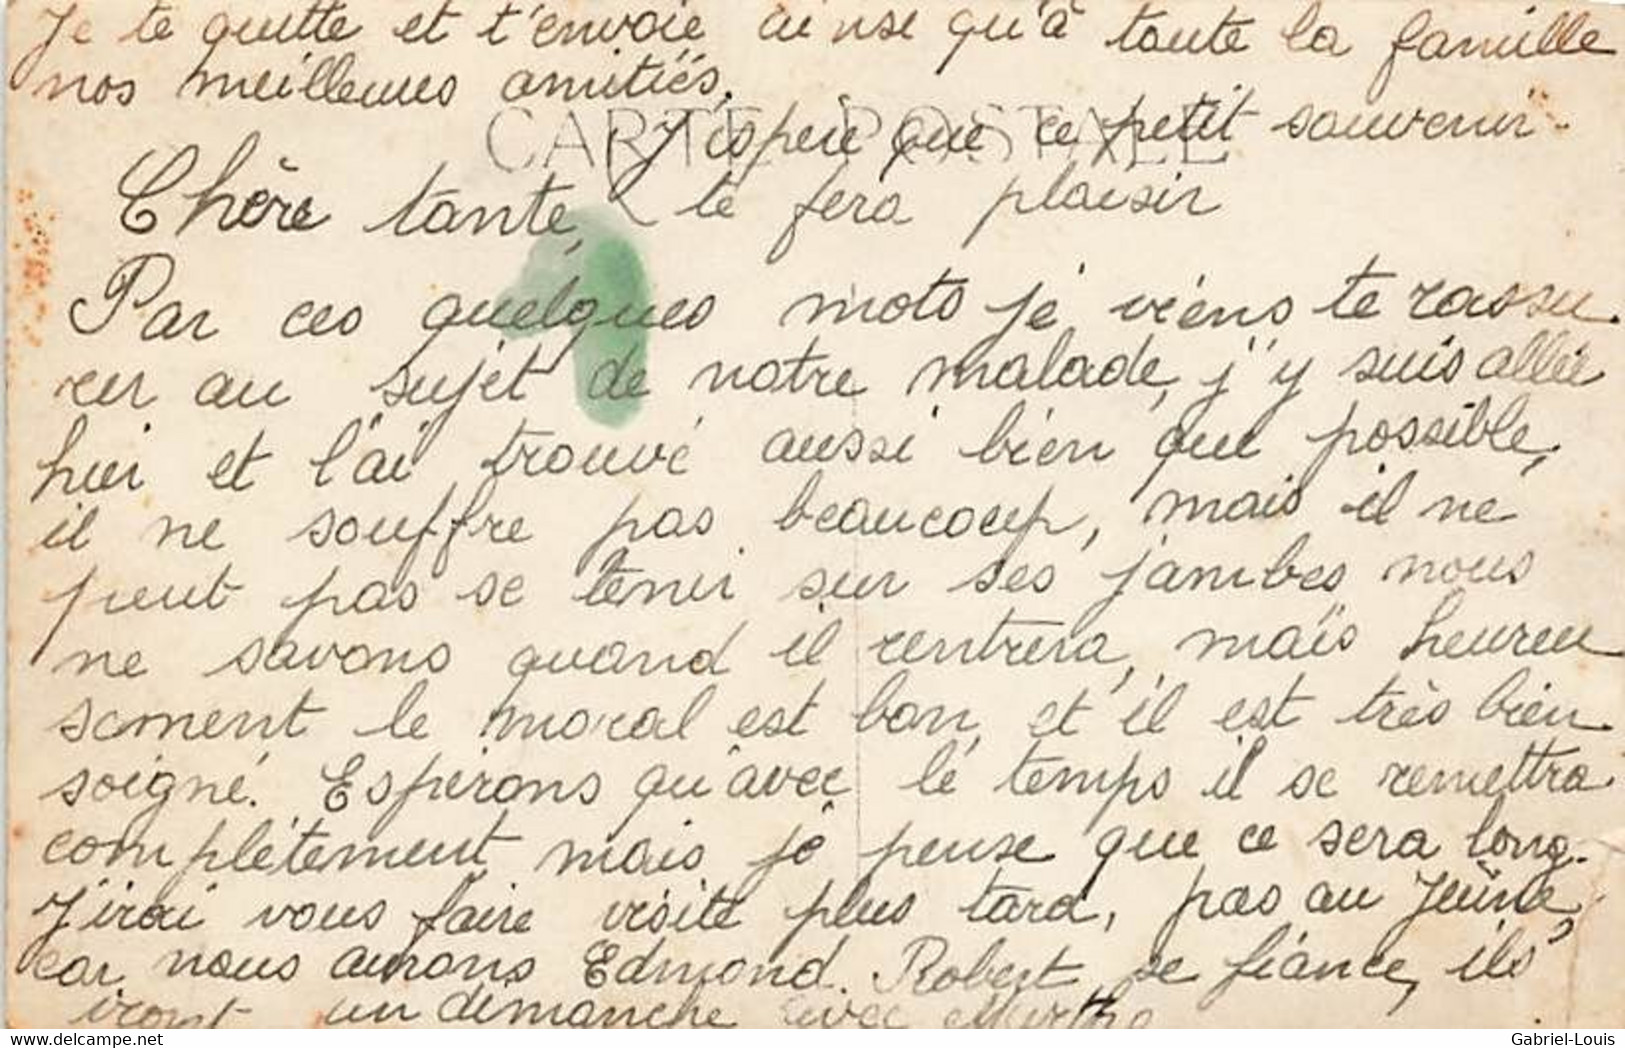 Je te quitte et t'envoie ainsi qu'à toute la famille
nos meilleures amitiés.
CARTE POSTALE
J'espère que ce petit souvenir
te fera plaisir
Chère tante,
Par ces quelques mots je viens te rassu
rer au sujet de notre malade, j'y suis allée
hier et l'ai trouvé aussi bien que possible,
il ne souffre pas beaucoup, mais il ne
peut pas se tenir sur ses jambes nous
ne savons quand il rentrera, mais heureu
sement le moral est bon et il est très bien
soigné. Espérons qu'avec le temps il se remettra
complètement mais je pense que ce sera long.
J'irai vous faire visite plus tard, pas au Jeûne,
car nous aurons Edmond. Robert se fiance, ils
iront un dimanche avec Marthe
Gabriel-Louis